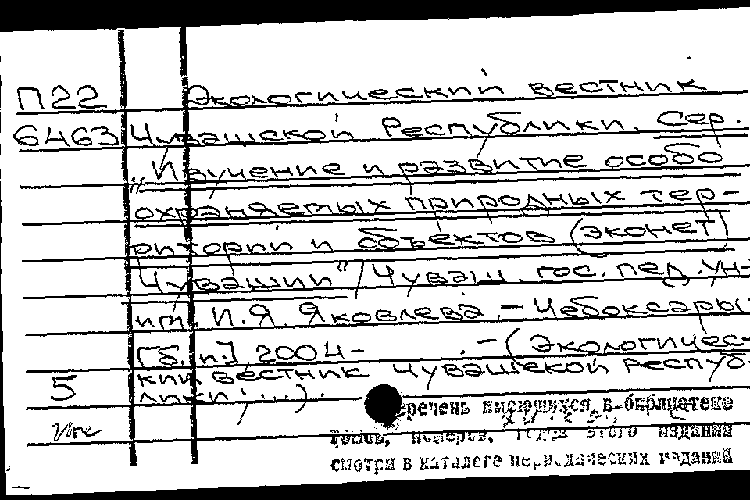 П22 Экологический вестник
6463 Чувашской Республики. Сер.
"Изучение и развитие особо
охраняемых природных тер-
ритории и объектов (эконет)
Чувашии"/Чуваш. гос. пед. ун-
им. И.Я. Яковлева. - Чебоксары:
[б.и.], 2004- . - (Экологичес-
кий вестник Чувашской Респуб-
5 лики; ...).
речень имеющихся в библиотеке
томов, номеров, этого издания
смотри в каталоге периодических изданий